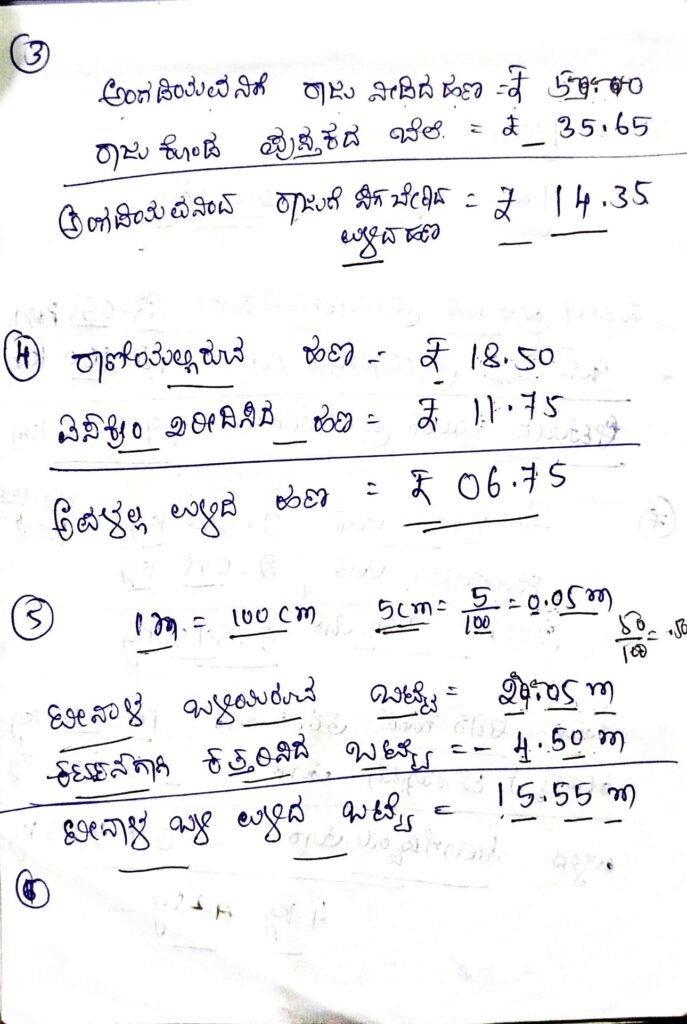 ③
ಅಂಗಡಿಯವನಿಗೆ ರಾಜು ನೀಡಿದ ಹಣ = ₹ 50.00
ರಾಜು ಕೊಂಡ ಪುಸ್ತಕದ ಬೆಲೆ = ₹ 35.65
ಅಂಗಡಿಯವನಿಂದ ರಾಜುಗೆ ಸಿಗಬೇಕಾದ = ₹ 14.35
ಉಳಿದ ಹಣ
④ ರಾಣಿಯಲ್ಲಿರುವ ಹಣ = ₹ 18.50
ಐಸ್‌ಕ್ರೀಂ ಖರೀದಿಸಿದ ಹಣ = ₹ 11.75
ಅವಳಲ್ಲಿ ಉಳಿದ ಹಣ = ₹ 06.75
⑤ 1m = 100 cm 5cm = 5/100 = 0.05m
50/100 = .50
ಟೀನಾಳ ಬಳಿಯಿರುವ ಬಟ್ಟೆ = 20.05 m
ಕರ್ಟನ್‌ಗಾಗಿ ಕತ್ತರಿಸಿದ ಬಟ್ಟೆ = - 4.50 m
ಟೀನಾಳ ಬಳಿ ಉಳಿದ ಬಟ್ಟೆ = 15.55 m
⑥